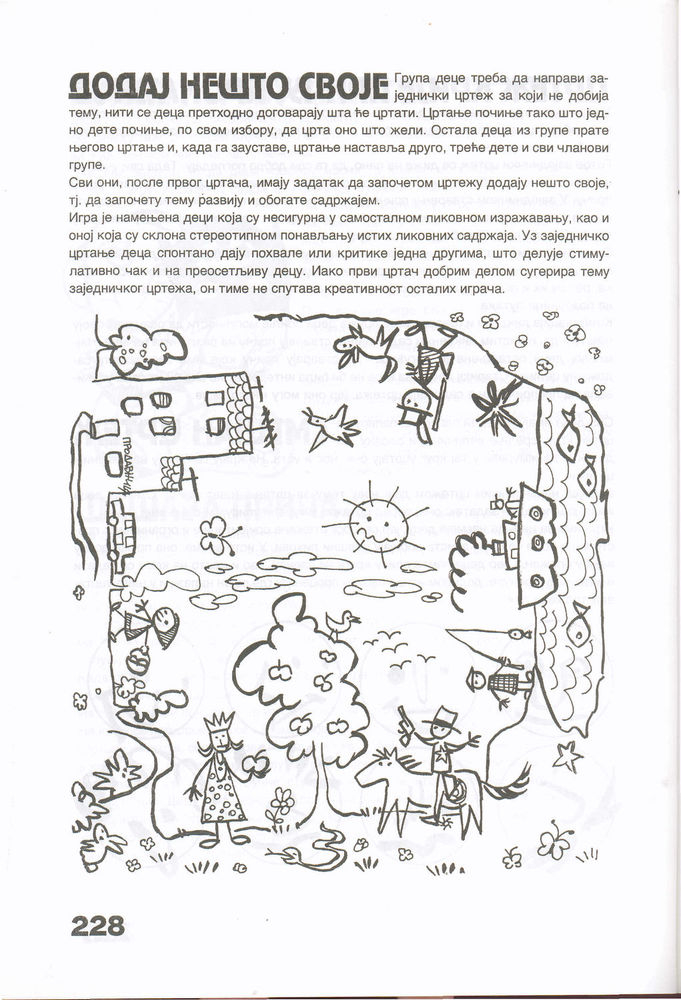 ДОДАЈ НЕШТО СВОЈЕ Група деце треба да направи за-
једнички цртеж за који не добија
тему, нити се деца претходно договарају шта ће цртати. Цртање почиње тако што јед-
но дете почиње, по свом избору, да црта оно што жели. Остала деца из групе прате
његово цртање и, када га зауставе, цртање наставља друго, треће дете и сви чланови
групе.
Сви они, после првог цртача, имају задатак да започетом цртежу додају нешто своје,
тј. да започету тему развију и обогате садржајем.
Игра је намењена деци која су несигурна у самосталном ликовном изражавању, као и
оној која су склона стереотипном понављању истих ликовних садржаја. Уз заједничко
цртање деца спонтано дају похвале или критике једна другима, што делује стиму-
лативно чак и на преосетљиву децу. Иако први цртач добрим делом сугерира тему
заједничког цртежа, он тиме не спутава креативност осталих играча.
ПРОДАВНИЦА
228